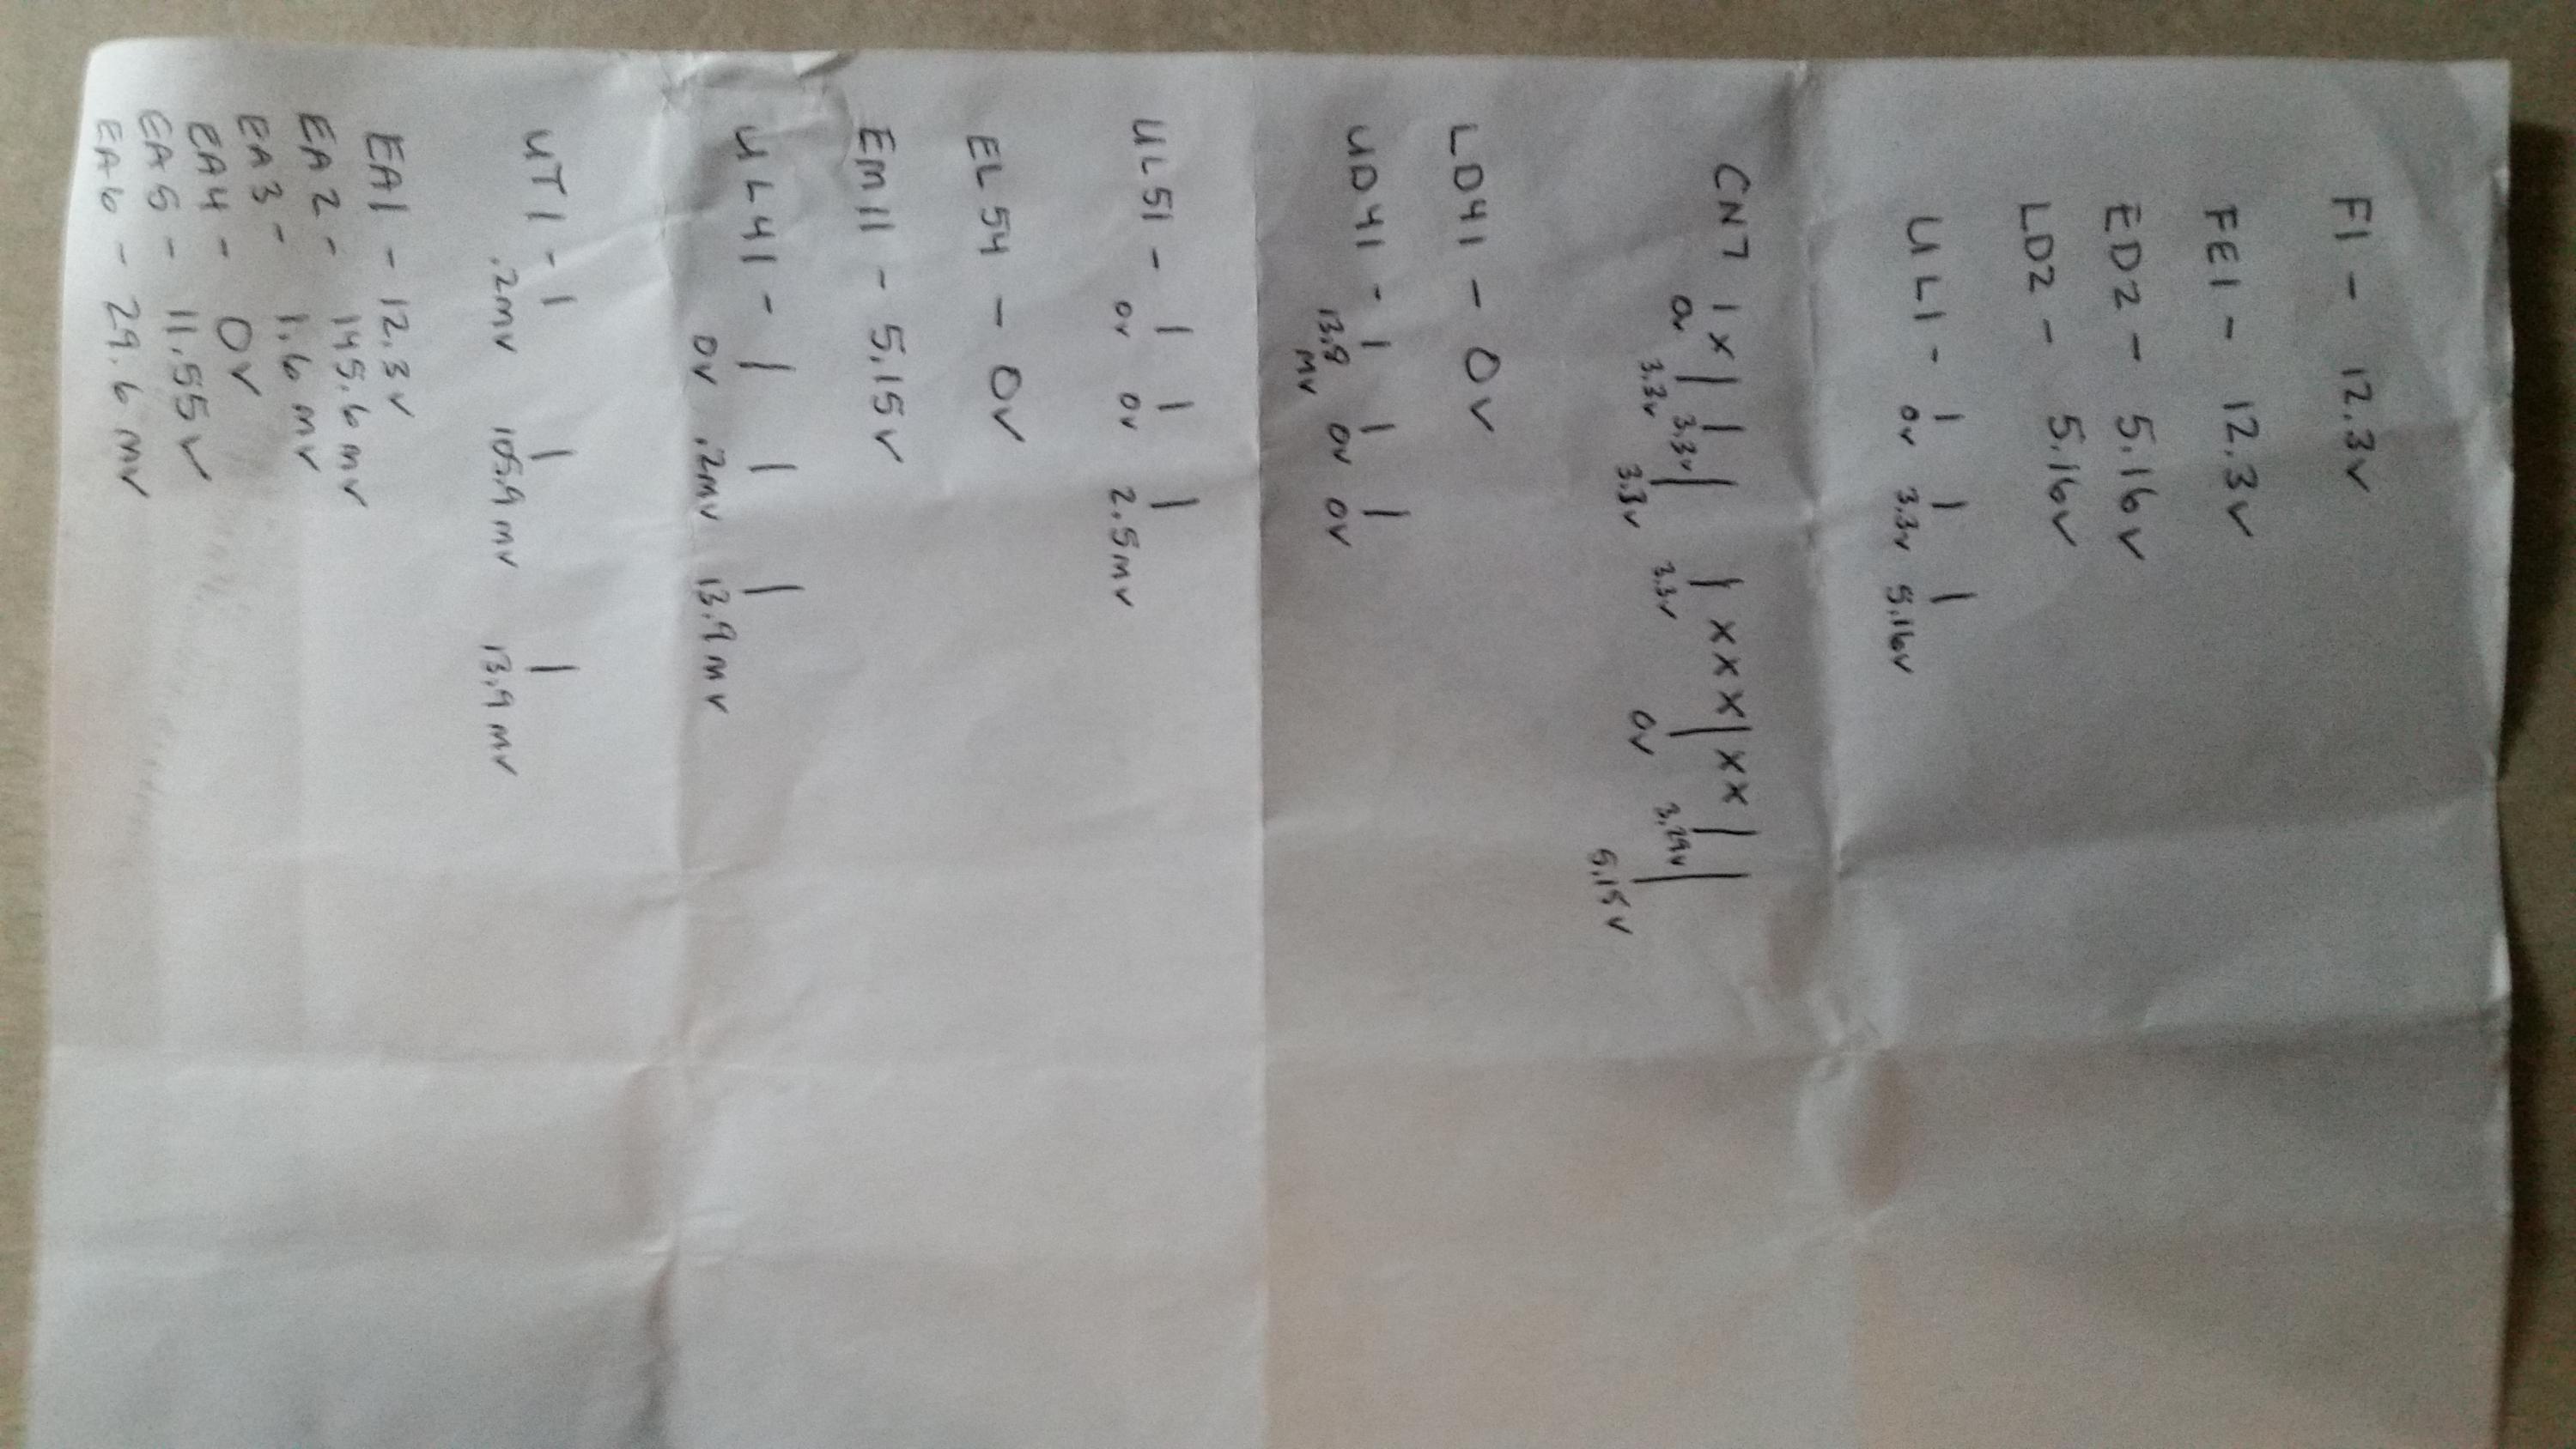 F1 - 12.3v
FE1 - 12.3v
ED2 - 5.16v
LD2 - 5.16v
UL1 - | | |
0v 3.3v 5.16v
CN7 | x | | | | x x x | x x | |
0v 3.3v 3.3v 3.3v 3.3v 0v 3.29v 5.15v
LD41 - 0v
UD41 - | | |
13.8 mv 0v 0v
UL51 - | | |
0v 0v 2.5mv
EL54 - 0v
EM11 - 5.15v
UL41 - | | |
0v .2mv 13.9mv
UT1 - | | |
.2mv 105.9mv 13.9mv
EA1 - 12.3v
EA2 - 145.6mv
EA3 - 1.6mv
EA4 - 0v
EA5 - 11.55v
EA6 - 29.6mv